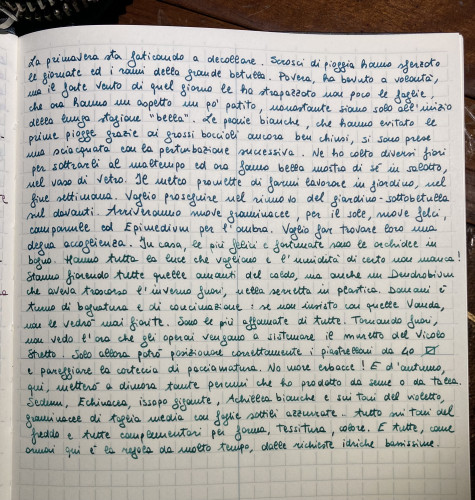 La primavera sta faticando a decollare. Scrosci di pioggia hanno sferzato
le giornate ed i rami della grande betulla. Povera, ha bevuto a volontà,
ma il forte vento di quel giorno le ha strapazzato non poco le foglie,
che ora hanno un aspetto un po' patito, nonostante siano solo all'inizio
della lunga stagione "bella". Le peonie bianche, che hanno evitato le
prime piogge grazie ai grossi boccioli ancora ben chiusi, si sono prese
una sciacquata con la perturbazione successiva. Ne ho colto diversi fiori
per sottrarli al maltempo ed ora fanno bella mostra di sé in salotto,
nel vaso di vetro. Il meteo promette di farmi lavorare in giardino, nel
fine settimana. Voglio proseguire nel rinnovo del giardino-sottobetulla
sul davanti. Arriveranno nuove graminacee, per il sole, nuove felci,
campanule ed Epimedium per l'ombra. Voglio far trovare loro una
degna accoglienza. In casa, le più felici e fortunate sono le orchidee in
bagno. Hanno tutta la luce che vogliono e l'umidità di certo non manca!
Stanno fiorendo tutte quelle amanti del caldo, ma anche un Dendrobium
che aveva trascorso l'inverno fuori, nella serretta in plastica. Domani è
turno di bagnatura e di concimazione: se non insisto con quelle Vanda,
non le vedrò mai fiorite. Sono le più affamate di tutte. Tornando fuori,
non vedo l'ora che gli operai vengano a sistemare il muretto del Vicolo
Stretto. Solo allora potrò posizionare correttamente i piastrelloni da 40
e pareggiare la corteccia di pacciamatura. No more erbacce! E d'autunno,
qui, metterò a dimora tante perenni che ho prodotto da seme o da talea.
Sedum, Echinacea, issopo gigante, Achillea bianche e sui toni del violetto,
graminacee di taglia media con foglie sottili azzurrate.. tutto sui toni del
freddo e tutte complementari per forma, tessitura, colore. E tutte, come
ormai qui è la regola da molto tempo, dalle richieste idriche bassissime.